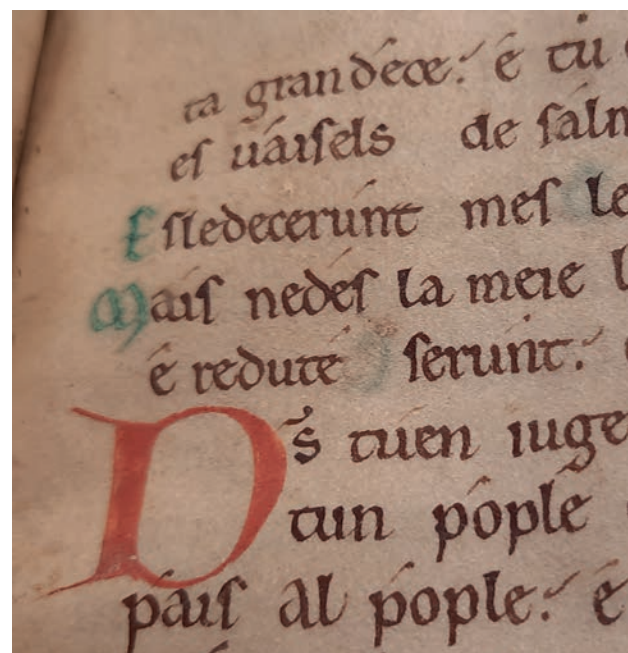 ta grandece: é tu
eſ uáiſels de ſalm
Eſledecerunt meſ le
Maiſ nedéſ la meie l
é reduté ſerunt:
Ds̄ tuen iuge
tun póple
páiſ al póple: é